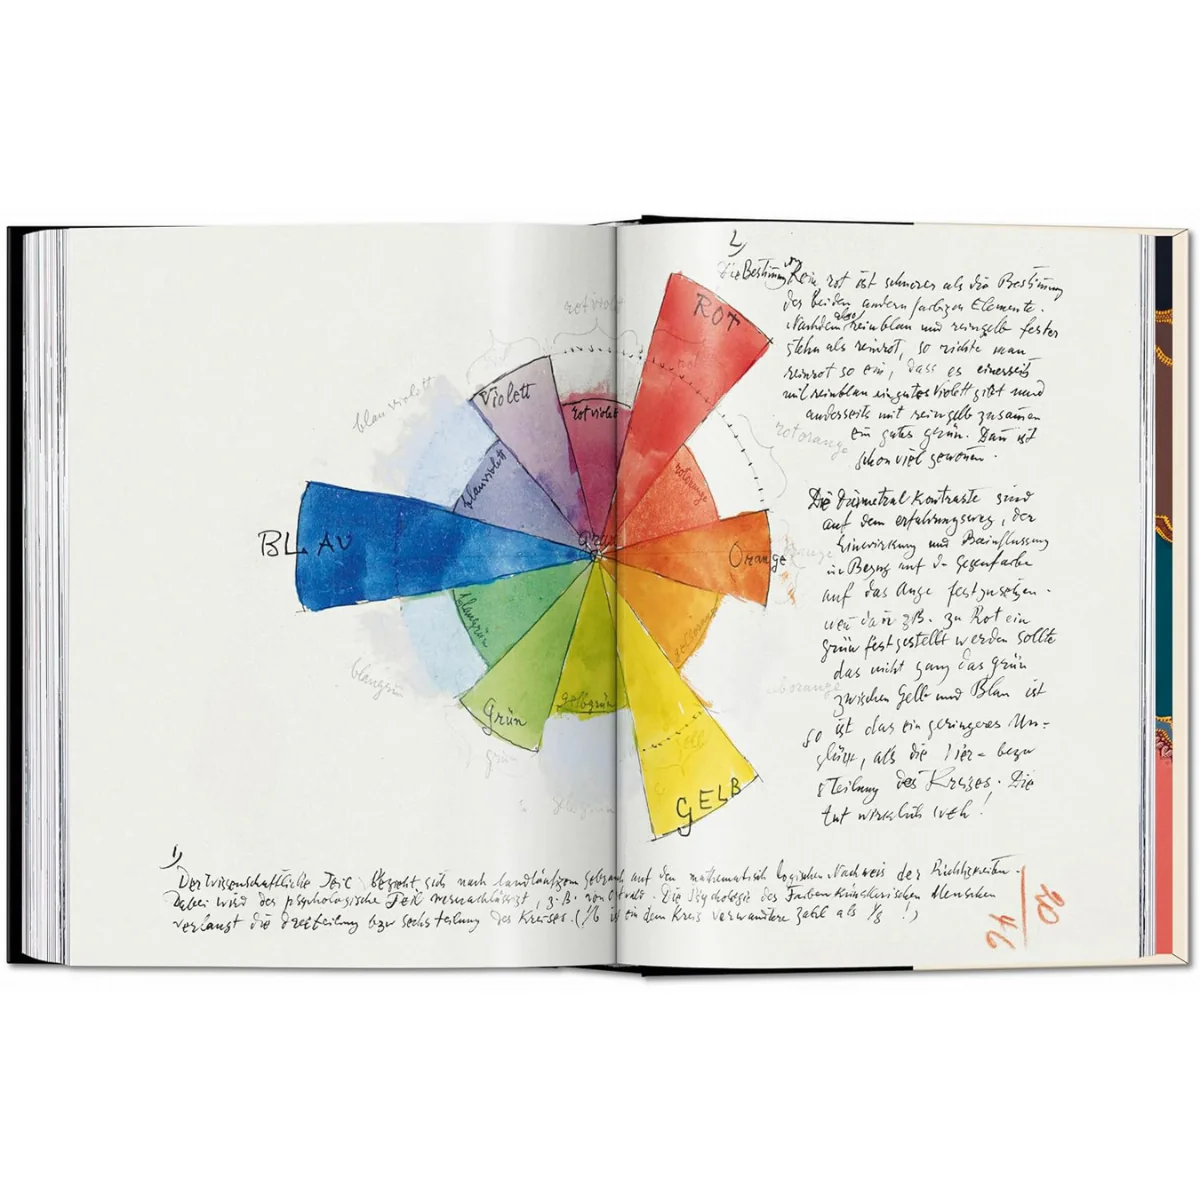 rotviolett
blauviolett
ROT
rot
Violett
rotviolett
rotorange
blauviolett
rotorange
BLAU
Grau
Orange
orange
blaugrün
gelborange
blaugrün
Grün
gelbgrün
gelb
grün
GELB
2)
Die Bestimmung Rein rot ist schwerer als die Bestimmung
der beiden andern farbigen Elemente.
Nachdem also reinblau und reingelb fester
stehn als reinrot, so richte man
reinrot so ein, dass es einerseits
mit reinblau ein gutes Violett gibt und
anderseits mit reingelb zusammen
ein gutes . Dann ist
schon viel gewonnen.
Die Diametral Kontraste sind
auf dem erfahrungsweg, der
Einwirkung und Beeinflussung
in Bezug auf die Gegenfarbe
auf das Auge festzusetzen.
wenn dann z.B. zu Rot ein
grün festgestellt werden sollte
das nicht ganz das grün
zwischen Gelb und Blau ist
so ist das ein geringeres Un-
glück, als die Vier- bezw
8 Teilung des Kreises. Die
tut wirklich weh!
1)
Der Wissenschaftliche Teil bezieht sich nach landläufigem gebrauch auf den mathematisch logischen Nachweis der Richtigkeiten.
Dabei wird der psychologische Teil vernachlässigt, z.B. von Ostwald. Die Psychologie des Farben künstlerischen Menschen
verlangt die Dreiteilung bzw sechsteilung des Kreises. (1/6 ist ein dem Kreis verwandtere Zahl als 1/8 !)
20
46